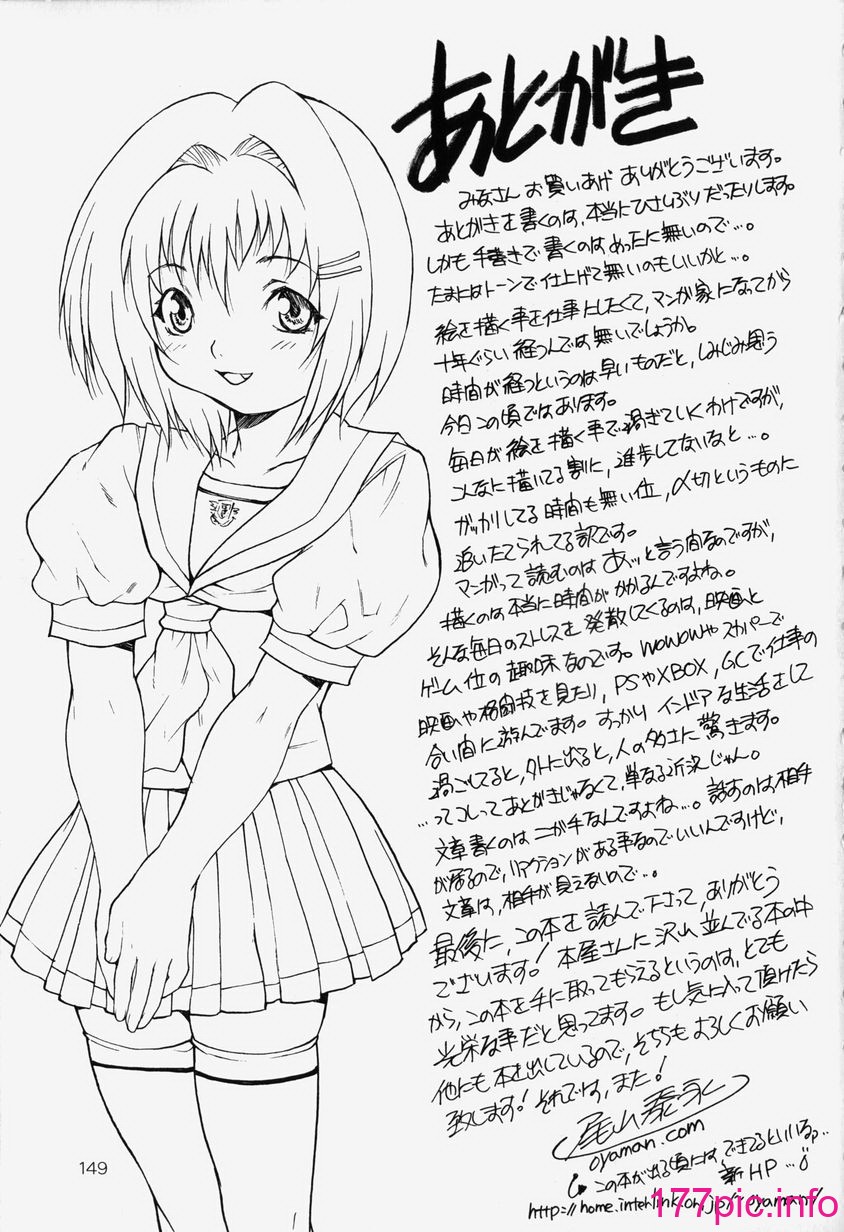 あとがき
みなさん お買いあげ ありがとうございます。
あとがきを書くのは、本当にひさしぶりだったりします。
しかも手書きで書くのはめったに無いので…。
たまにはトーンで仕上げて無いのもいいかと…。
絵を描く事を仕事にしたくて、マンガ家になってから
十年ぐらい経つんでは無いでしょうか。
時間が経つというのは早いものだと、しみじみ思う
今日この頃ではあります。
毎日が絵を描く事で過ぎていくわけですが、
こんなに描いてる割に、進歩してないなと…。
ガッカリしてる時間も無い位、〆切というものに
追いたてられてる訳です。
マンガって読むのは あッと言う間なのですが、
描くのは本当に時間がかかるんですよね。
そんな毎日のストレスを発散してくるのは、映画と
ゲーム位の趣味なのです。WOWOWやスカパーで
映画や格闘技を見たり、PSやXBOX、GCで仕事の
合い間に遊んでます。すっかり インドアな生活をして
過ごしてると、外に出ると、人の多さに驚きます。
…ってコレってあとがきじゃなくて、単なる近況じゃん。
文章書くのは ニガ手なんですよね…。話すのは、相手
が居るので、リアクションがある事なのでいいんですけど、
文章は、相手が見えないので…。
最後に、この本を 読んで下さって、ありがとう
ございます！本屋さんに沢山 並んでる本の中
から、この本を手に取ってもらえるというのは、とても
光栄な事だと思ってます。もし気に入って頂けたら
他にも 本を出しているので、そちらも よろしくお願い
致します！それでは、また！
尾山泰永
oyaman.com
この本が出る頃には、できてるといいな…
新HP…
149
177pic.info